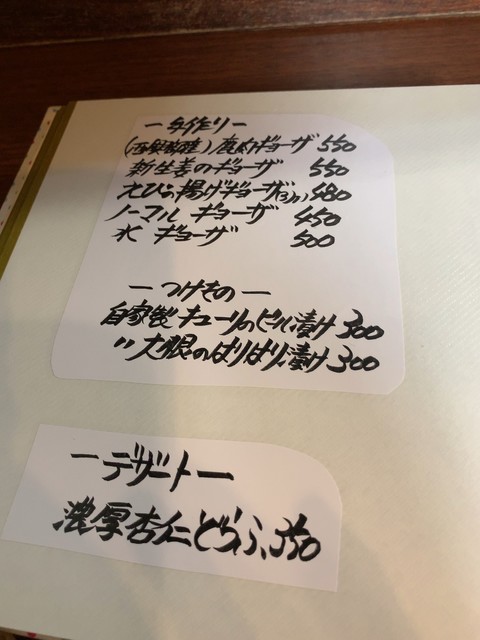 ー手作りー
鹿肉ギョーザ 550
新生姜のギョーザ 550
えびの揚げギョーザ(3ヶ) 480
ノーマル ギョーザ 450
水 ギョーザ 500
ーつけものー
自家製 キューリのビール漬け 300
〃 大根のはりはり漬け 300
ーデザートー
濃厚杏仁どうふ